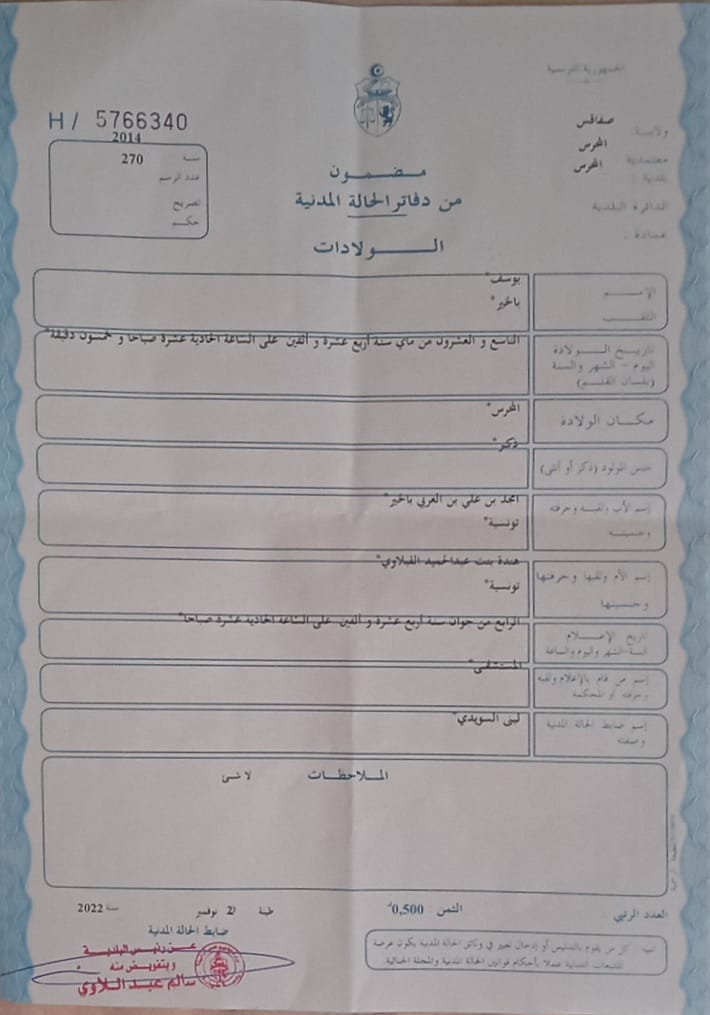 الجمهورية التونسية
ولاية: صفاقس
معتمدية المحرس
بلدية: المحرس
الدائرة البلدية
عمادة:
H/ 5766340
سنة 2014
عدد الرسم 270
تصريح
حكم
مضمون
من دفاتر الحالة المدنية
الولادات
الإسم يوسف*
اللقب بالخير*
تاريخ الولادة
اليوم - الشهر والسنة
(بلسان القلم)
التاسع و العشرون من ماي سنة أربع عشرة و ألفين على الساعة الحادية عشرة صباحا و خمسون دقيقة*
مكان الولادة المحرس*
جنس المولود (ذكر أو أنثى) ذكر*
إسم الأب ولقبه وحرفته امحمد بن علي بن العربي بالخير*
وجنسيته تونسية*
إسم الأم ولقبها وحرفتها هندة بنت عبدالحميد القبلاوي*
وجنسيتها تونسية*
تاريخ الإعلام
السنة-الشهر واليوم والساعة
الرابع من جوان سنة أربع عشرة و ألفين على الساعة الحادية عشرة صباحا*
إسم من قام بالإعلام ولقبه
وحرفته أو المحكمة
المستشفى*
إسم ضابط الحالة المدنية
وصفته
لبنى السويدي*
الملاحظات لا شئ
العدد الرتبي: الثمن 0,500د
2 نوفمبر سنة 2022
ضابط الحالة المدنية
عن رئيس البلدية
وبتفويض منه
سالم عبد اللاوي
تنبيه: كل من يقوم بالتدليس أو إدخال تغيير في وثائق الحالة المدنية يكون عرضة
للتتبعات العدلية عملا بأحكام قوانين الحالة المدنية والمجلة الجنائية.